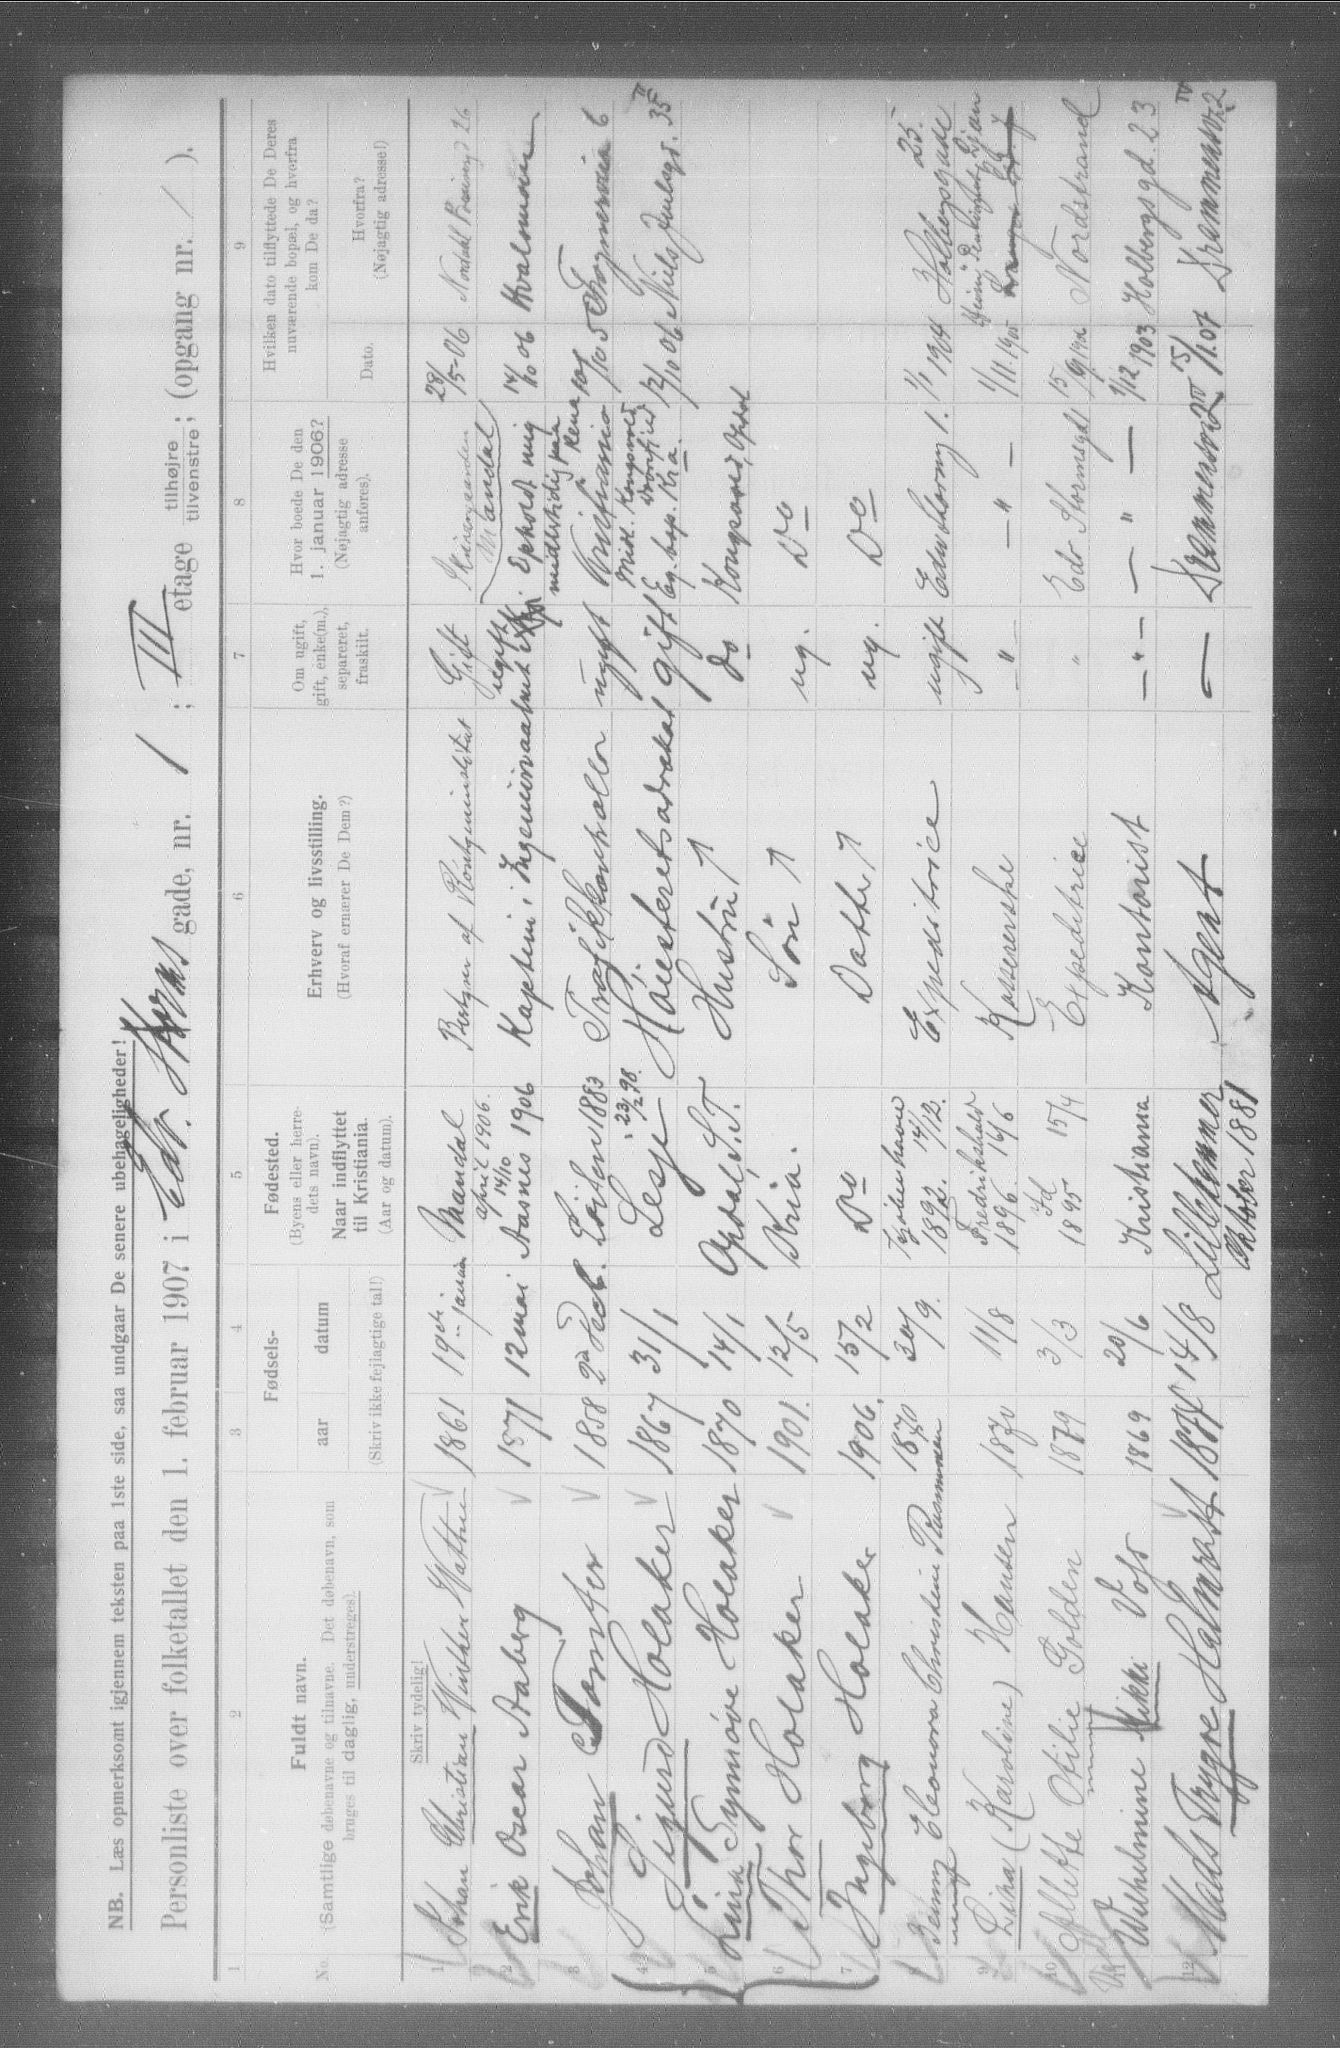 NB. Læs opmerksomt igjennem teksten paa 1ste side, saa undgaar De senere ubehageligheder!
Personliste over folketallet den 1. februar 1907 i Edv. Storms gade, nr. 1 ; III etage tilhøjre tilvenstre ; (opgang nr. / ).
1 2 3 4 5 6 7 8 9
No. Fuldt navn. (Samtlige døbenavne og tilnavne. Det døbenavn, som bruges til daglig, understreges).
Fødsels- aar datum (Skriv ikke fejlagtige tal!)
Fødested. (Byens eller herredets navn). Naar indflyttet til Kristiania. (Aar og datum).
Erhverv og livsstilling. (Hvoraf ernærer De Dem?)
Om ugift, gift, enke(m.), separeret, fraskilt.
Hvor boede De den 1. januar 1906? (Nøjagtig adresse anføres).
Hvilken dato tilflyttede De Deres nuværende bopæl, og hvorfra kom De da?
Dato. Hvorfra? (Nøjagtig adresse!)
Skriv tydelig!
1 Johan Christian Winther Wathne 1861 19de januar Mandal april 1906. Bestyrer af Röntgeninstitut Gift Mandal 28/5-06 26
2 Erik Oscar Staberg 1871 12 mai Aasnes 14/10 1906 Kaptein i Ingeniørvaabnet ugift Opholdt mig midlertidig paa Rena 14/10 06 Hvalsmoen
3 Johan 1858 2d Løiten 1883 Trafikkontrollør ugift Kristiania Frognerveien 6
4 Sigurd Holaker 1867 31/1 Lesje 23/2 98. Høiesteretsadvokat gift Midl. Kongsvold Drivstuen Eg. bop. Kra. 12/10 06 Niels Juelsgt. 35 II
5 Lina Synnøve Holaker 1870 14/1 Opdal, S.T. Hustru do Kongsvold, Opdal
6 Thor Holaker 1901. 12/5 Kria. Søn ug. Do
7 Ingeborg Holaker 1906. 15/2 Do Datter ug. Do
8 Benny Eleonora Christine Rasmussen 1870 30/9. Kjøbenhavn 1892. 14/12. Expeditrice ugift Edv Stormg 1. 1/1 1904 Holbergsgade 25.
9 (Karoline) Hansen 1870 11/8 Fredrikshald 1896. 16/6 Kassererske — " — — " — 1/11. 1905
10 Ottilie Golden 1879 3/3 Fd 1895 15/4 Expeditrice " Edv Stormsgd 1 15/9 Nordstrand
11 Wilhelmine Mikki Voss 1869 20/6 Kristiania Kontorist — " — — " — 1/12 1903 Holbergsgd. 23
12 Mads Trygve Halvorsen 14/8 Lillehammer Oktober 1881 Agent — Drammensv 2 IV 15/1.07 Drammensv. 2 IV